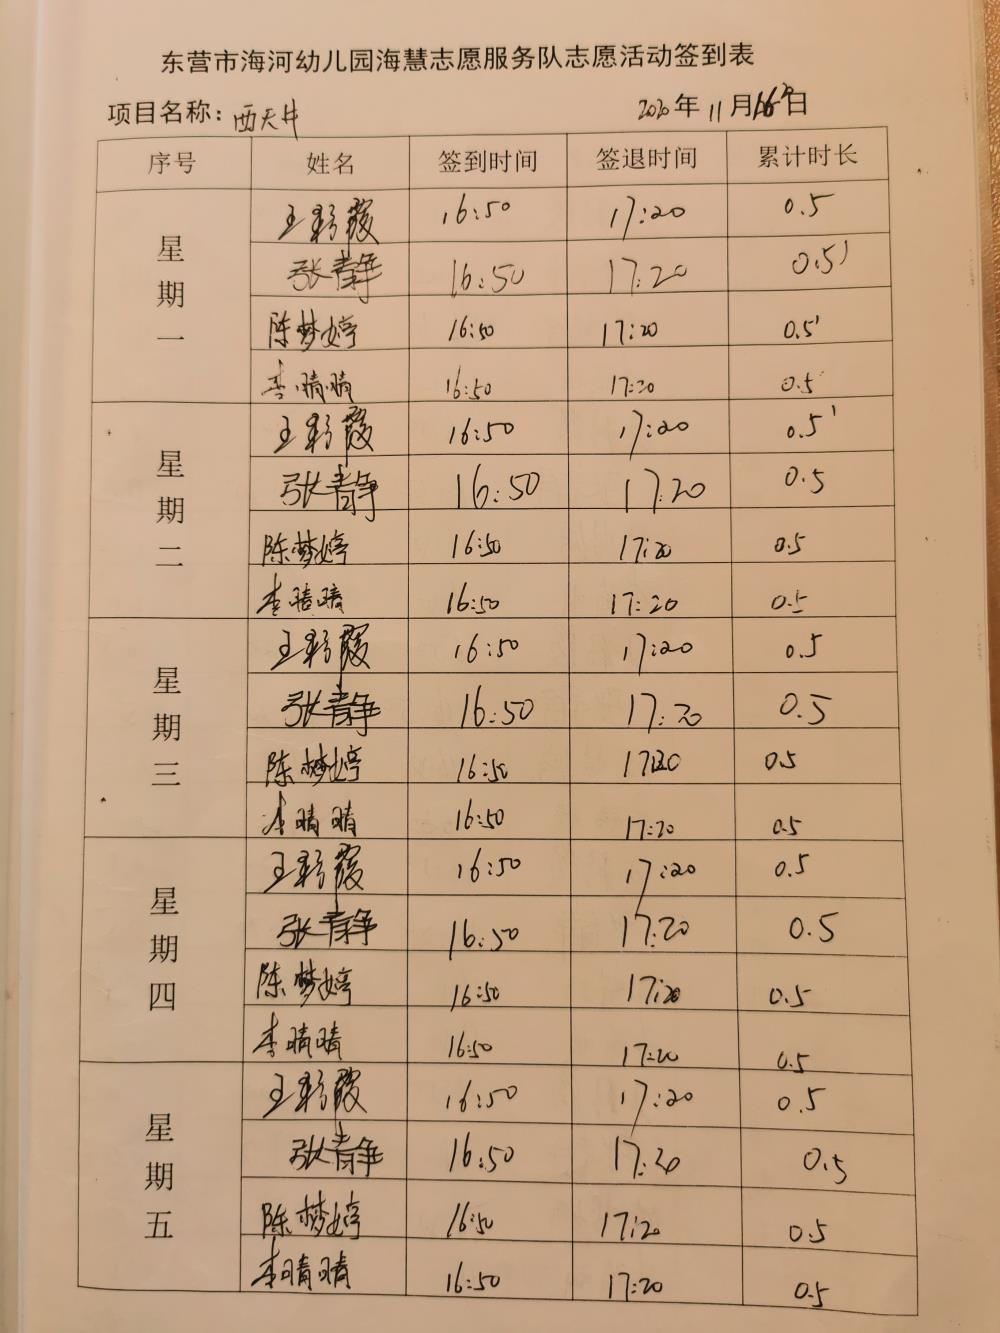 东营市海河幼儿园海慧志愿服务队志愿活动签到表
项目名称：西天井 2020年11月日
序号 姓名 签到时间 签退时间 累计时长
星期一 王彩霞 16:50 17:20 0.5
张静 16:50 17:20 0.5
陈梦婷 16:50 17:20 0.5
李晴晴 16:50 17:20 0.5
星期二 王彩霞 16:50 17:20 0.5
张静 16:50 17:20 0.5
陈梦婷 16:50 17:20 0.5
李晴晴 16:50 17:20 0.5
星期三 王彩霞 16:50 17:20 0.5
张静 16:50 17:20 0.5
陈梦婷 16:50 17:20 0.5
李晴晴 16:50 17:20 0.5
星期四 王彩霞 16:50 17:20 0.5
张静 16:50 17:20 0.5
陈梦婷 16:50 17:20 0.5
李晴晴 16:50 17:20 0.5
星期五 王彩霞 16:50 17:20 0.5
张静 16:50 17:20 0.5
陈梦婷 16:50 17:20 0.5
李晴晴 16:50 17:20 0.5